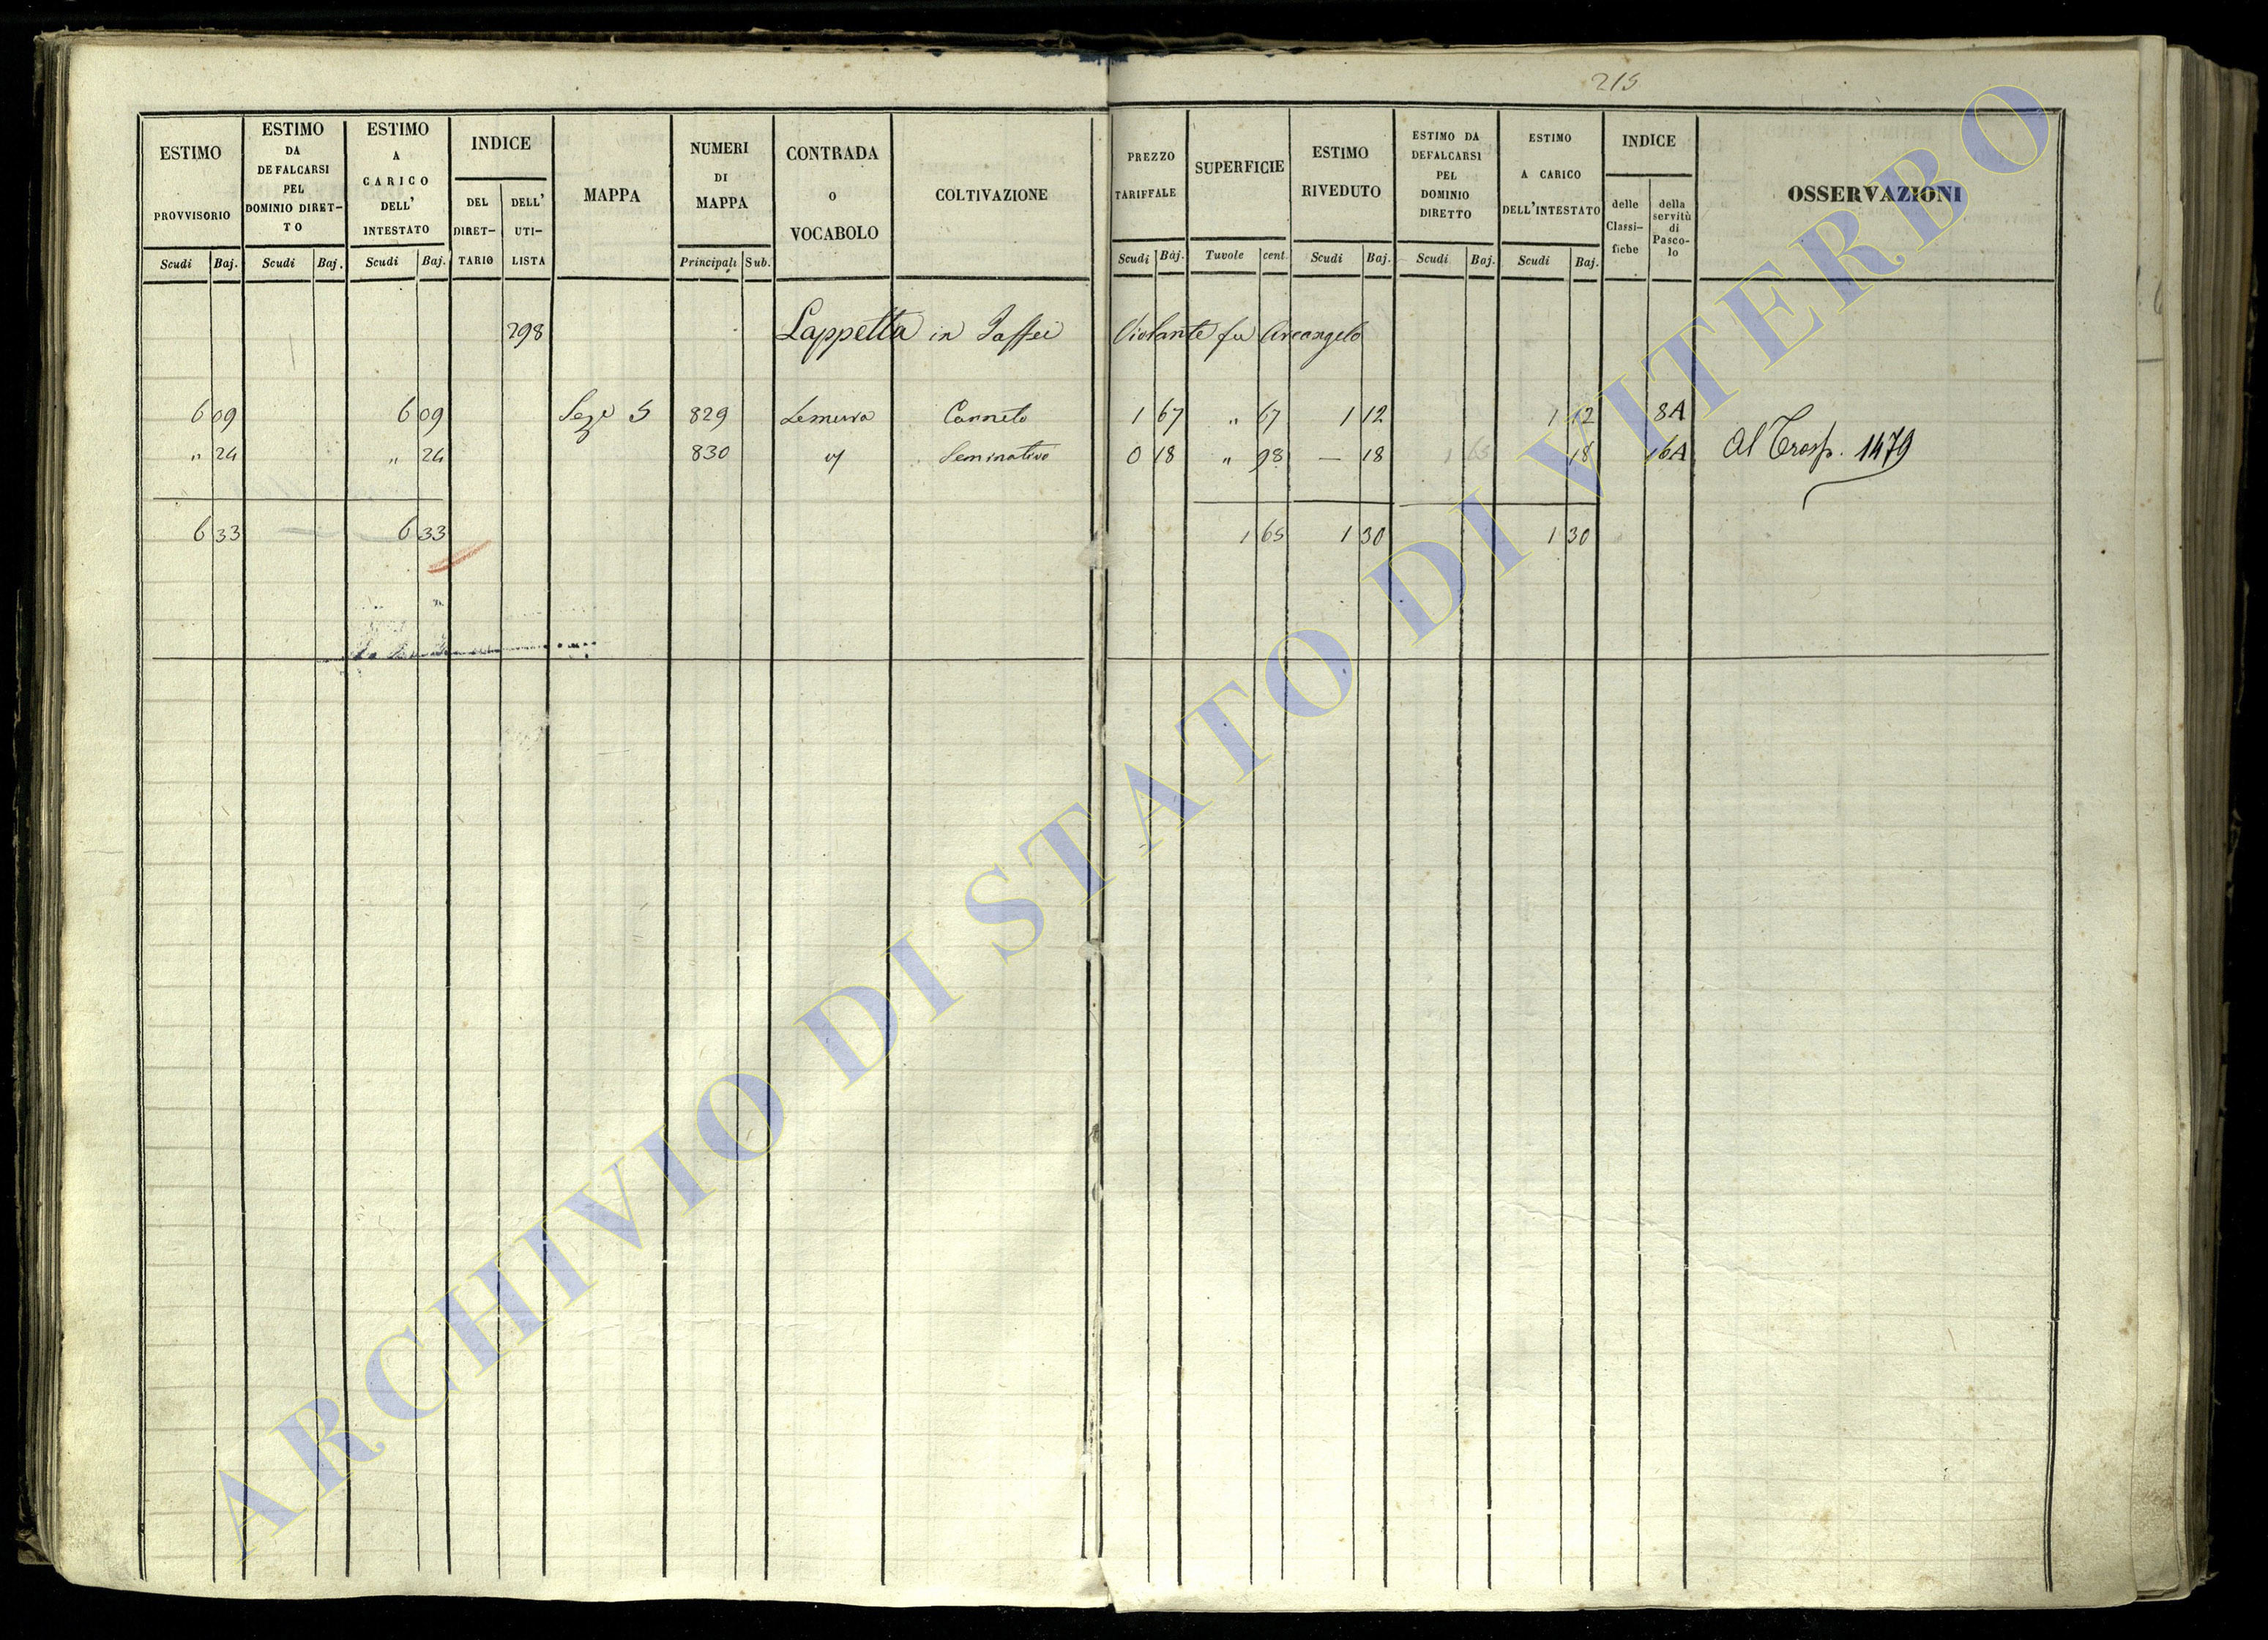 215
ESTIMO PROVVISORIO
Scudi Baj.
ESTIMO DA DEFALCARSI PEL DOMINIO DIRET–TO
Scudi Baj.
ESTIMO A CARICO DELL' INTESTATO
Scudi Baj.
INDICE
DEL DIRET–TARIO
DELL' UTI–LISTA
MAPPA
NUMERI DI MAPPA
Principali Sub.
CONTRADA O VOCABOLO
COLTIVAZIONE
PREZZO TARIFFALE
Scudi Baj.
SUPERFICIE
Tavole cent.
ESTIMO RIVEDUTO
Scudi Baj.
ESTIMO DA DEFALCARSI PEL DOMINIO DIRETTO
Scudi Baj.
ESTIMO A CARICO DELL'INTESTATO
Scudi Baj.
INDICE
delle Classi–fiche
della servitù di Pasco–lo
OSSERVAZIONI
298 Lappetta in Taffei Violante fu Arcangelo
6 09 6 09 Sez. 5 829 Canneto 1 67 " 67 1 12 1 12 8A
" 24 " 24 830 Seminativo 0 18 " 98 — 18 18 16A Al Trasp. 1479
6 33 6 33 1 65 1 30 1 30
ARCHIVIO DI STATO DI VITERBO